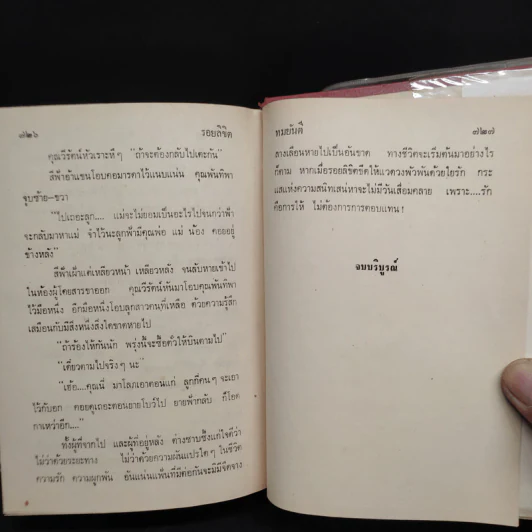 ๗๒๖ รอยลิขิต
คุณวีรัตน์หัวเราะหึๆ "ถ้าจะต้องกลับไปเตะกัน"
สีฟ้าอ้าแขนโอบคอมารดาไว้แนบแน่น คุณพันทิพา
จูบซ้าย—ขวา
"ไปเถอะลูก.... แม่จะไม่ยอมเป็นอะไรไปจนกว่าฟ้า
จะกลับมาหาแม่ จำไว้นะลูกฟ้ามีคุณพ่อ แม่ น้อง คอยอยู่
ข้างหลัง"
สีฟ้าเฝ้าแต่เหลียวหน้า เหลียวหลัง จนลับหายเข้าไป
ในห้องผู้โดยสารขาออก คุณวีรัตน์หันมาโอบคุณพันทิพา
ไว้มือหนึ่ง อีกมือหนึ่งโอบลูกสาวคนที่เหลือ ด้วยความรู้สึก
เสมือนกับมีสิ่งหนึ่งสิ่งใดขาดหายไป
"ถ้าร้องไห้กันนัก พรุ่งนี้จะซื้อตั๋วให้บินตามไป"
"เดี๋ยวตามไปจริงๆ นะ"
"เฮ้อ....คุณนี่ มาโลภเอาตอนแก่ ลูกกี่คนๆ จะเอา
ไว้กับอก คอยดูเถอะตอนยายโบว์ไป ยายฟ้ากลับ ก็โอด
กาเหว่าอีก...."
ทั้งผู้ที่จากไป และผู้ที่อยู่หลัง ต่างซาบซึ้งแก่ใจดีว่า
ไม่ว่าด้วยระยะทาง ไม่ว่าด้วยความผันแปรใดๆ ในชีวิต
ความรัก ความผูกพัน อันแน่นแฟ้นที่มีต่อกันจะมิมีจืดจาง
ทมยันตี ๗๒๗
ลางเลือนหายไปเป็นอันขาด ทางชีวิตจะเริ่มต้นมาอย่างไร
ก็ตาม หากเมื่อรอยลิขิตขีดให้แวดวงพัวพันด้วยใยรัก กระ
แสแห่งความสนิทเสน่หาจะไม่มีวันเสื่อมคลาย เพราะ....รัก
คือการให้ ไม่ต้องการการตอบแทน!
จบบริบูรณ์